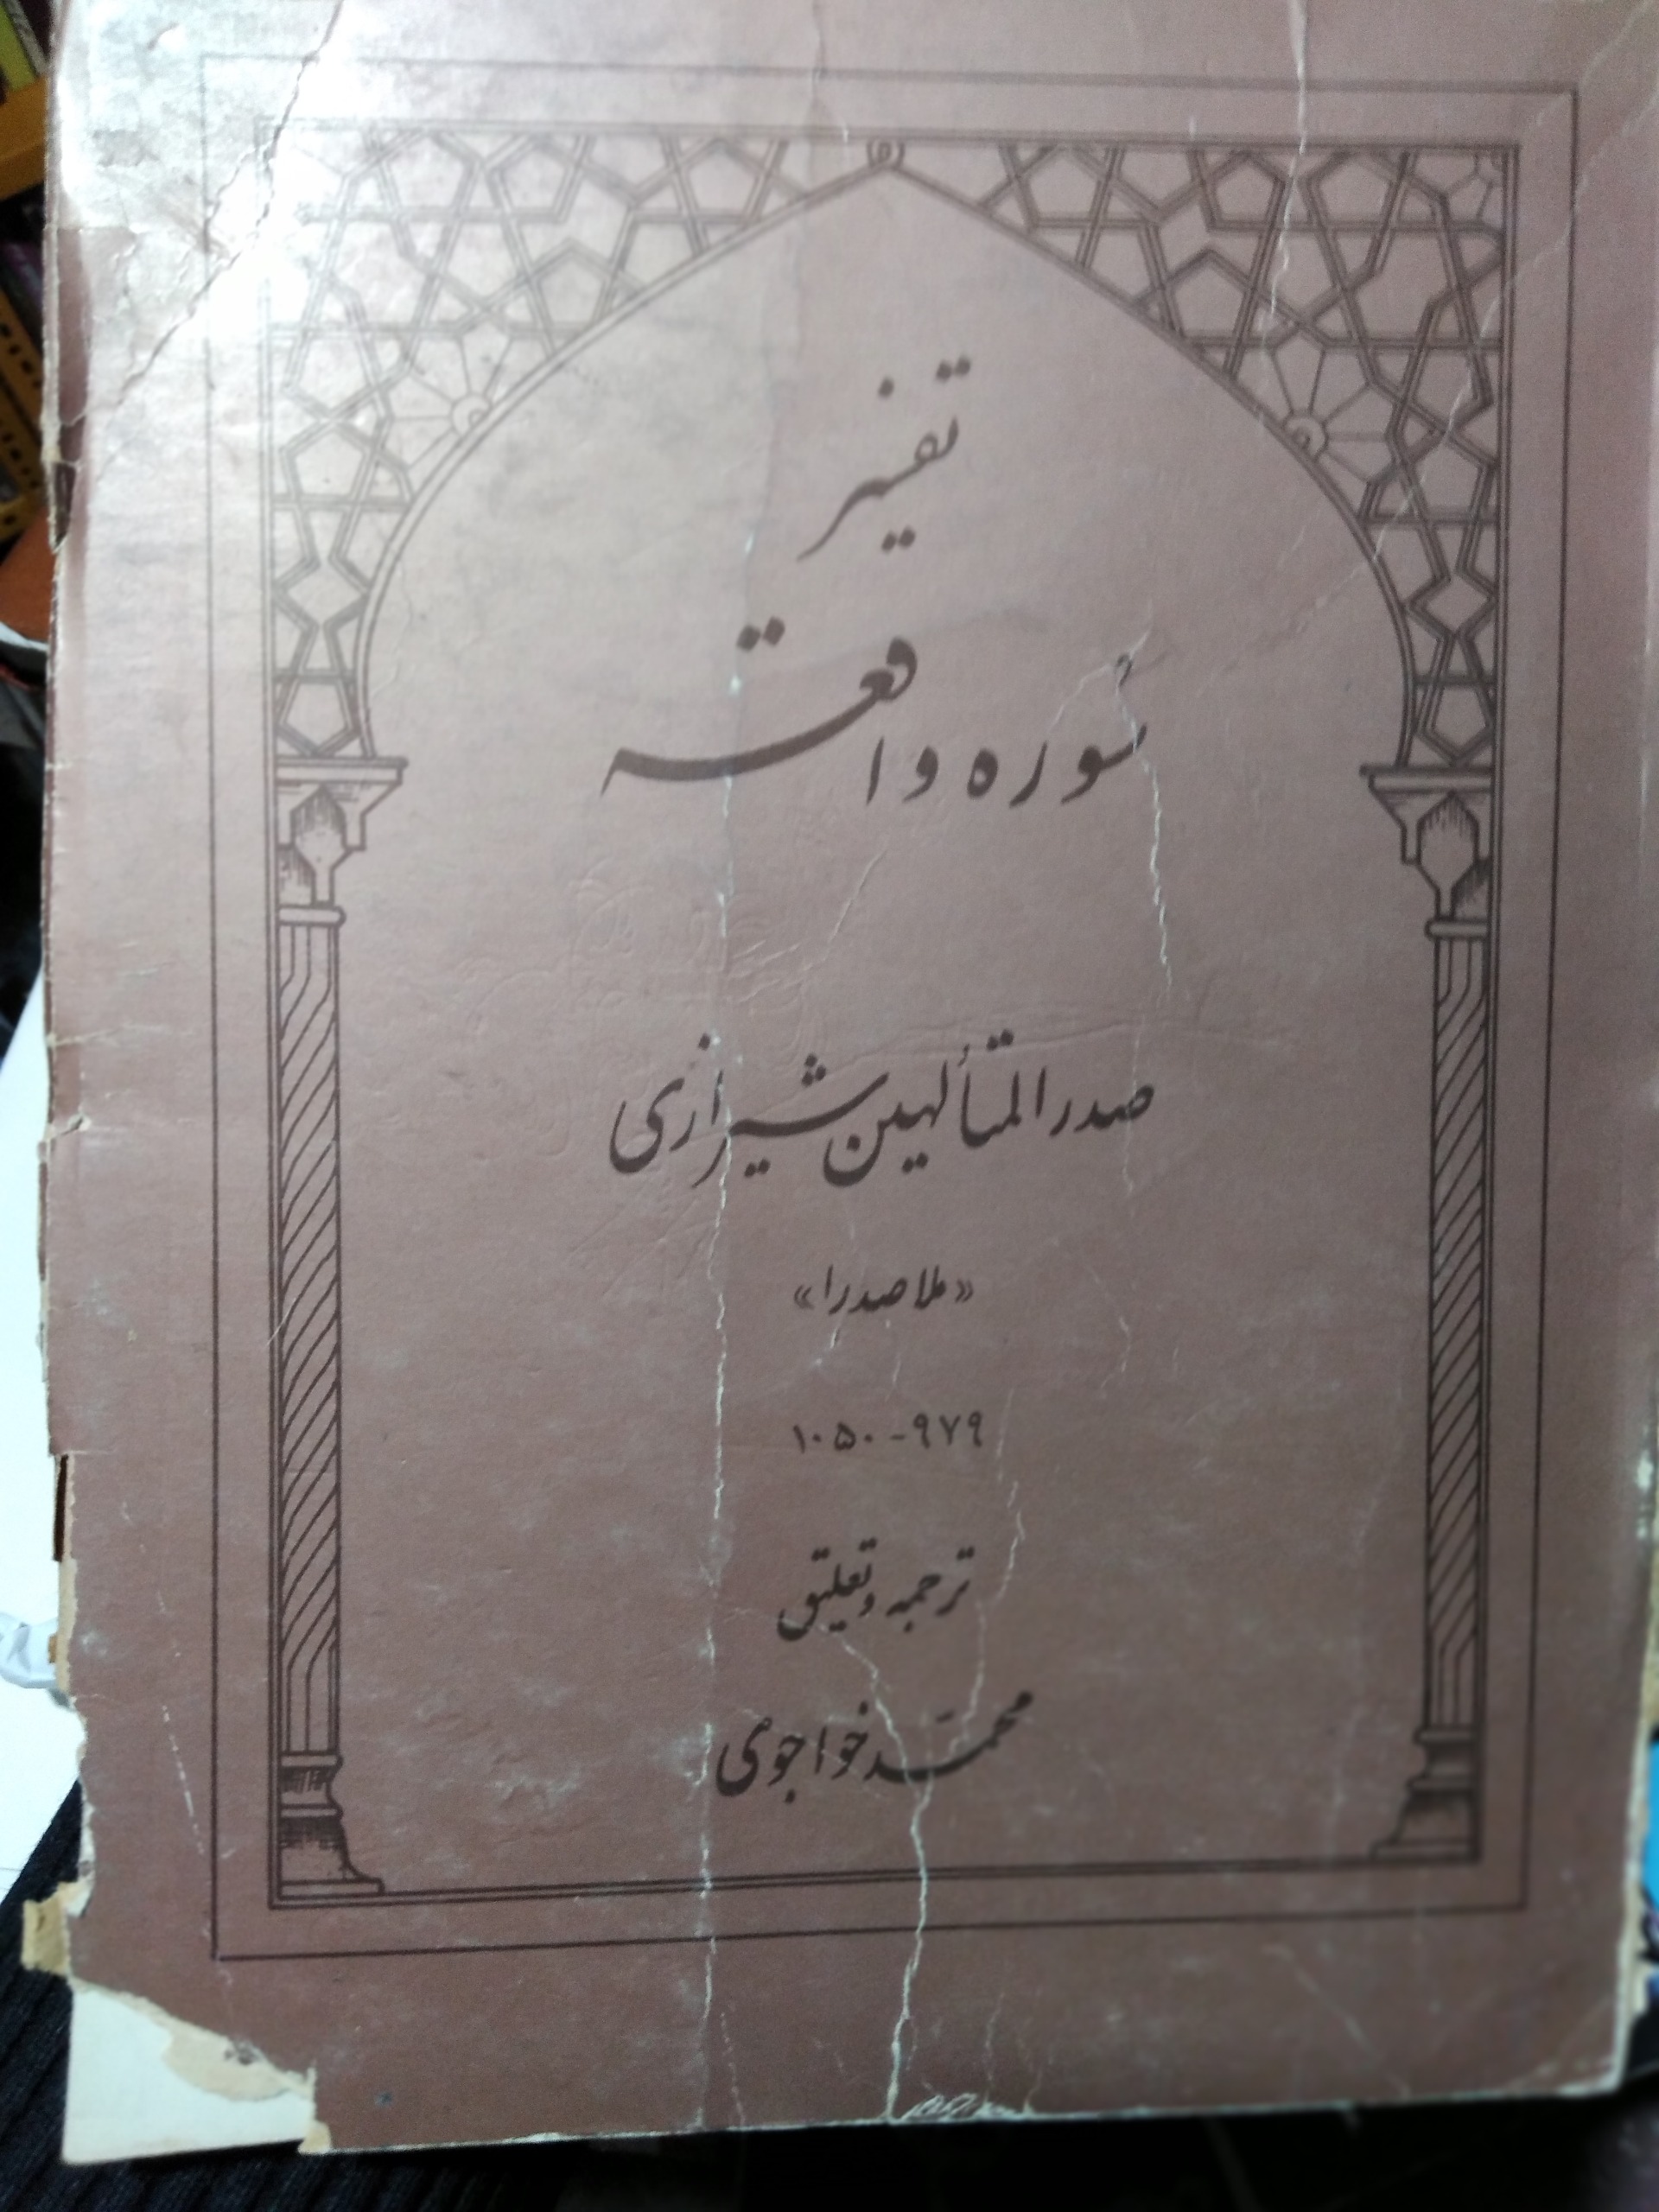 تفسیر
سُوره واقعه
صدرالمتألهین شیرازی
«ملاصدرا»
۹۷۹-۱۰۵۰
ترجمه و تعلیق
محمّد خواجوی